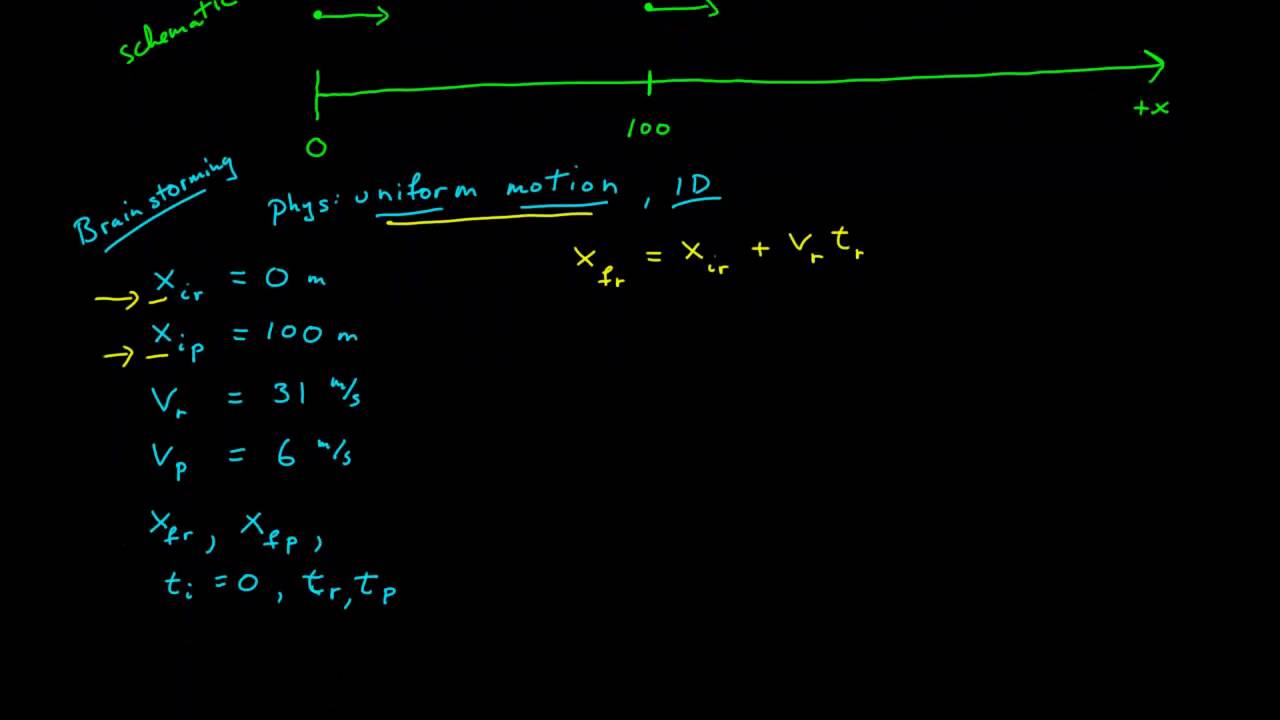 schematic
0 100 +x
Brainstorming
phys: uniform motion, 1D
x_fr = x_ir + v_r t_r
→ x_ir = 0 m
→ x_ip = 100 m
v_r = 31 m/s
v_p = 6 m/s
x_fr, x_fp,
t_i = 0, t_r, t_p